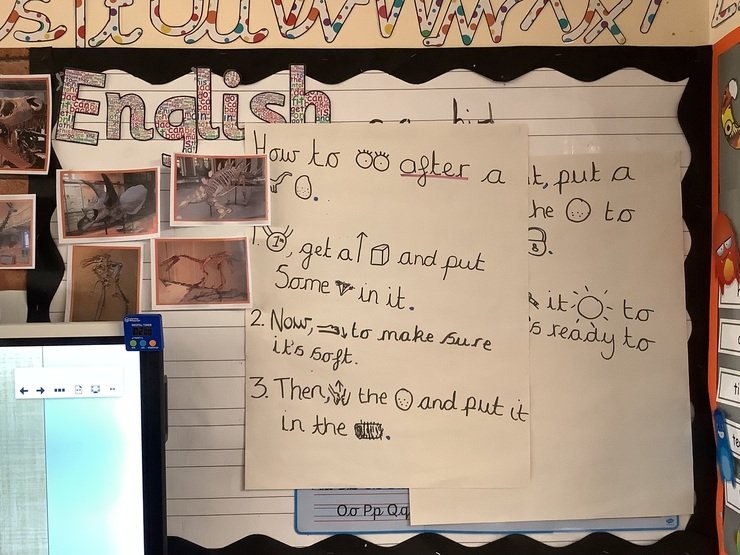 English
How to after a
.
1. , get a and put
Some in it.
2. Now, to make sure
it's soft.
3. Then, the and put it
in the .
t, put a
he to
B
it to
s ready to
Oo Pp Qq